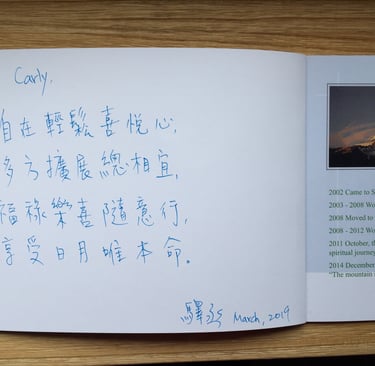 Carly,
自在輕鬆喜悅心,
多方擴展總相宜,
福祿樂喜隨意行,
享受日月唯本命。
March, 2019
2002 Came to S
2003 - 2008 Wo
2008 Moved to
2008 - 2012 Wo
2011 October, th
spiritual journey
2014 December
"The mountain i